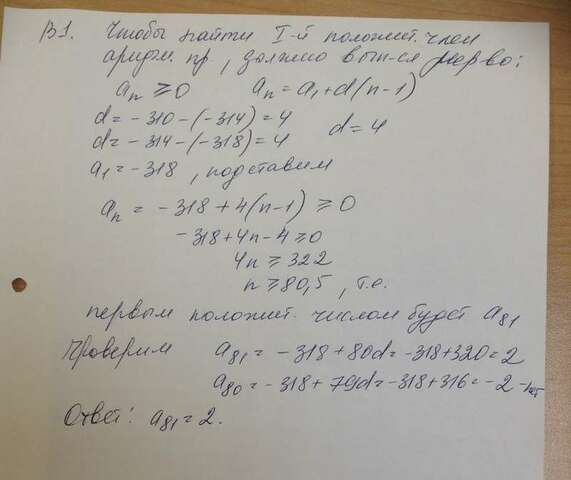 В1. Чтобы найти I-й положит. член
арифм. пр, должно вып-ся нер-во:
aₙ ≥ 0 aₙ = a₁ + d(n-1)
d = -310 - (-314) = 4
d = -314 - (-318) = 4 d = 4
a₁ = -318, подставим
aₙ = -318 + 4(n-1) ≥ 0
-318 + 4n - 4 ≥ 0
4n ≥ 322
n ≥ 80,5, т.е.
первым положит. числом будет a₈₁
Проверим a₈₁ = -318 + 80d = -318 + 320 = 2
a₈₀ = -318 + 79d = -318 + 316 = -2 -
Ответ: a₈₁ = 2.